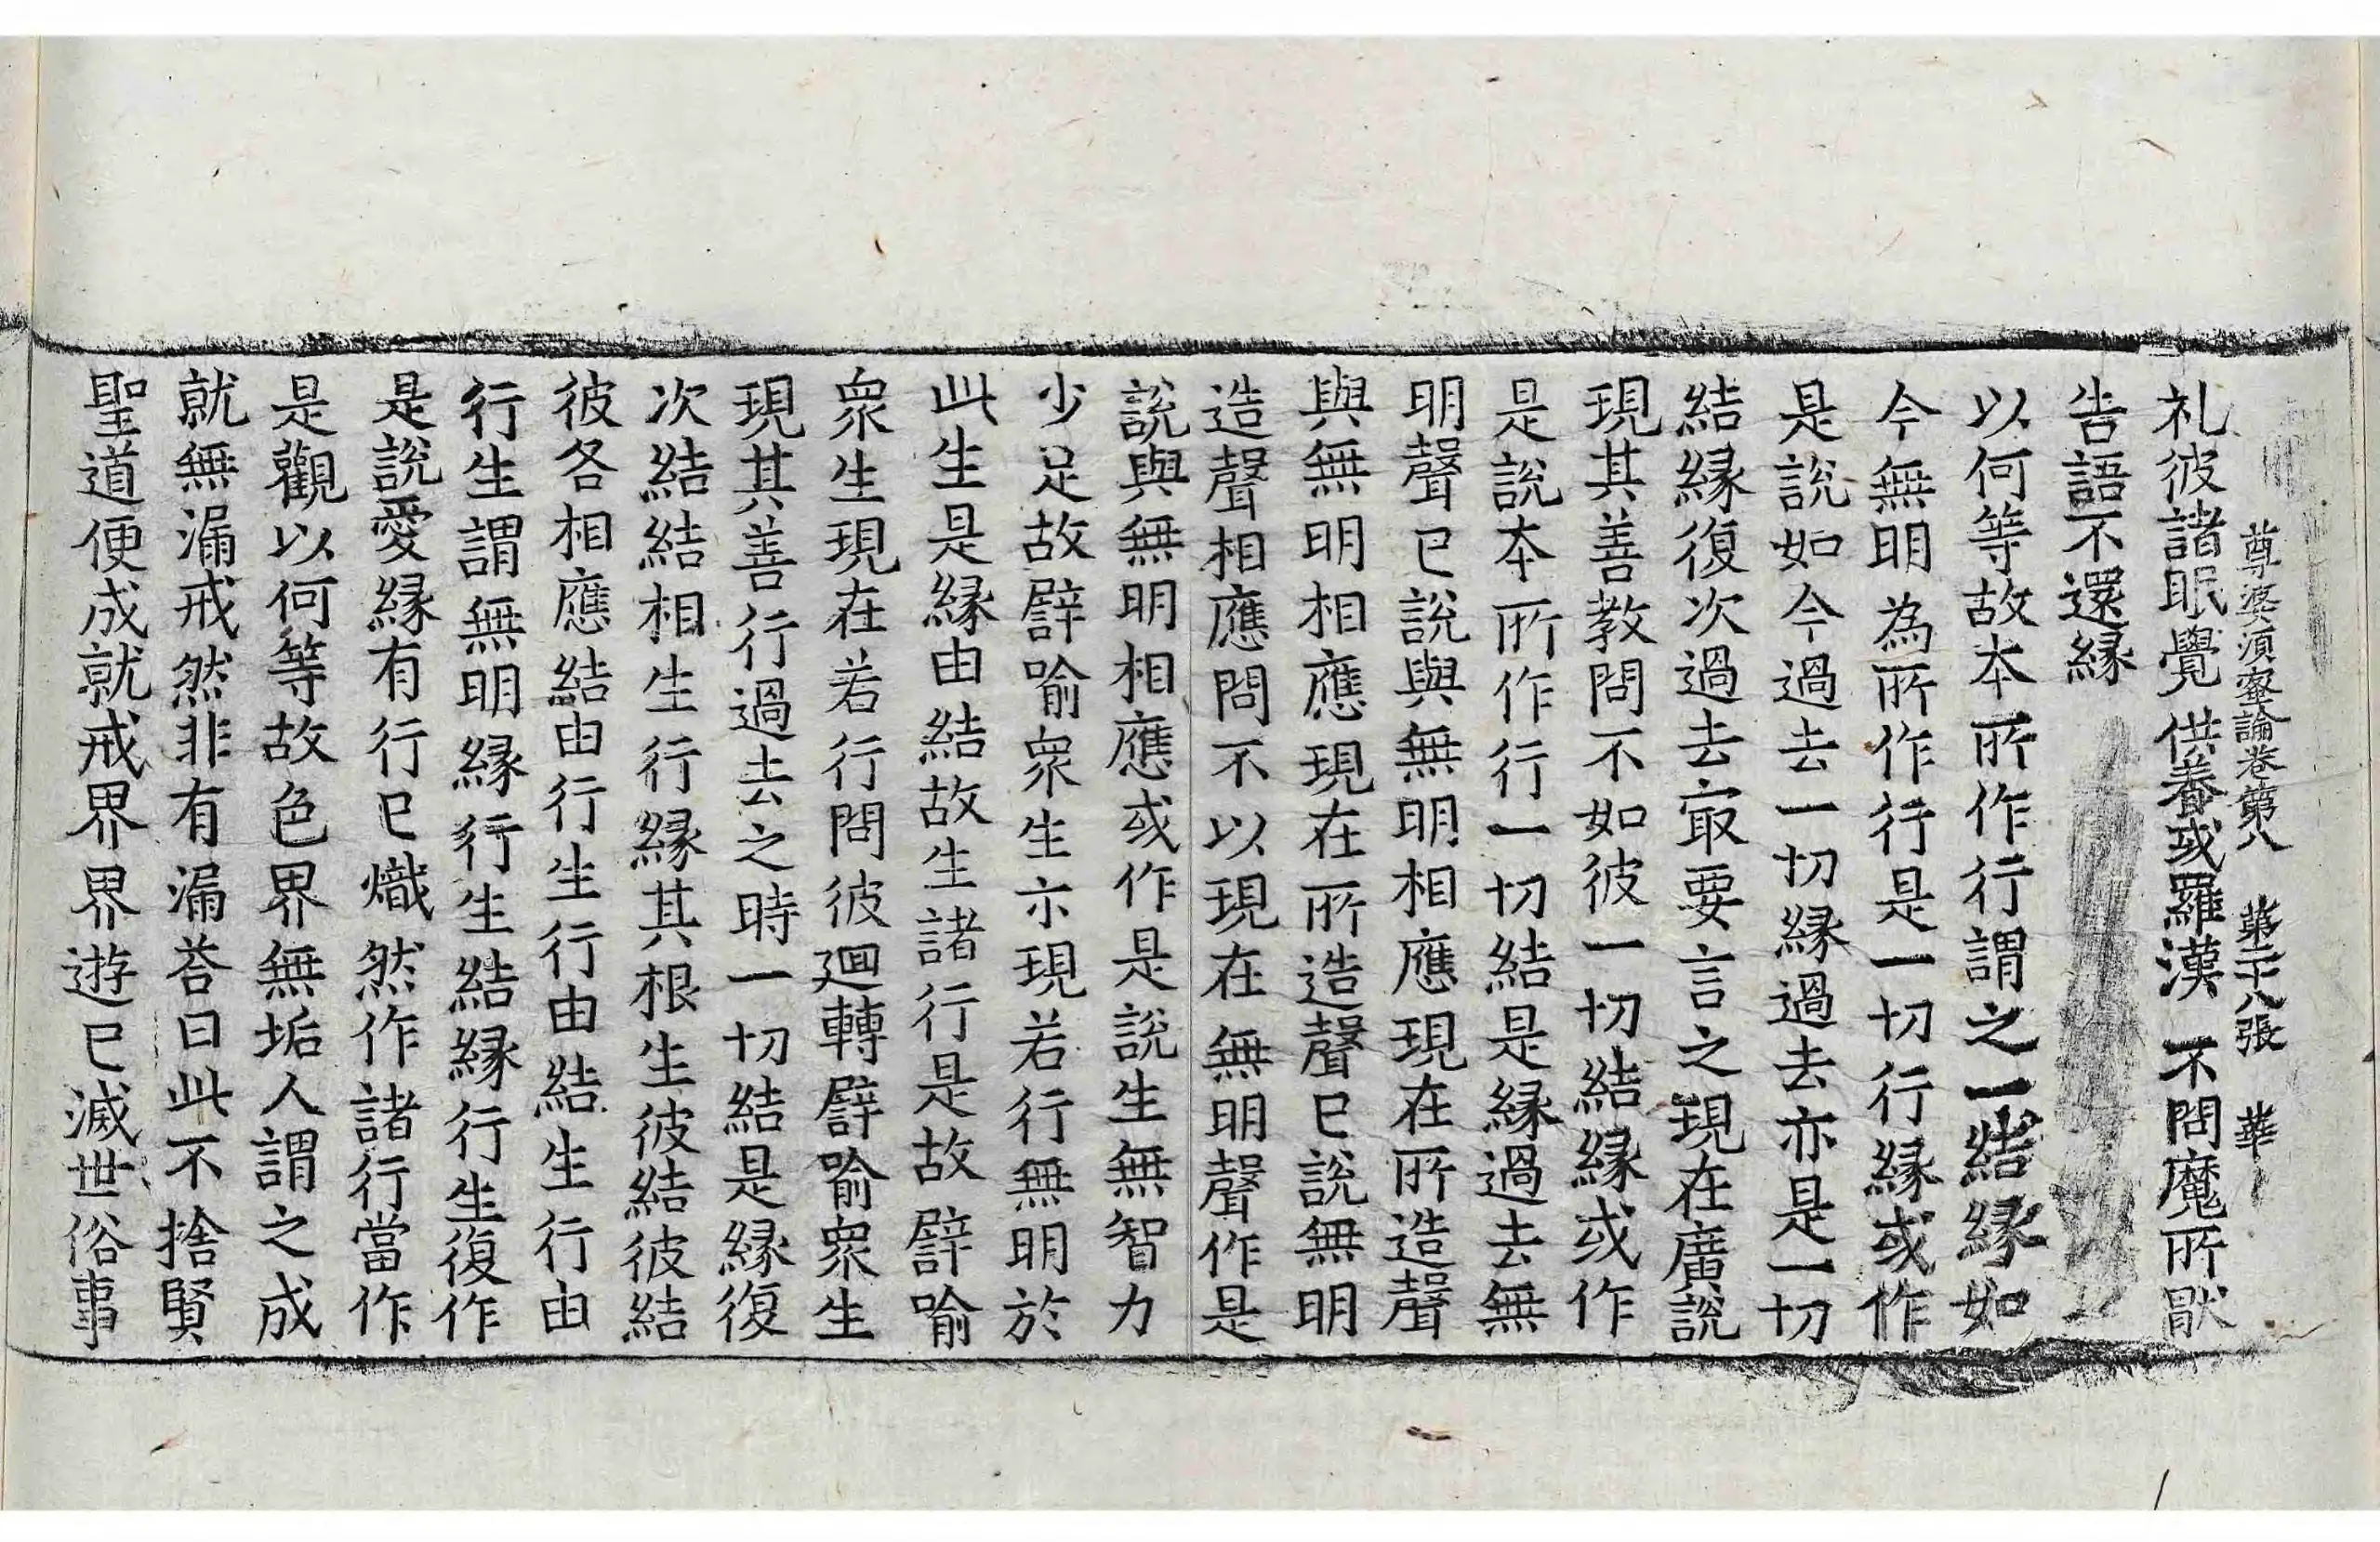 尊婆湏蜜論卷第八 第二十八張 華
礼彼諸眠覺供養或羅漢不問魔所猒
告語不還縁
以何等故本所作行謂之一結縁如
今無明為所作行是一切行縁或作
是說如今過去一切縁過去亦是一切
結縁復次過去㝡要言之現在廣說
現其善教問不如彼一切結縁或作
是說本所作行一切結是縁過去無
明聲已說與無明相應現在所造聲
與無明相應現在所造聲已說無明
造聲相應問不以現在無明聲作是
說與無明相應或作是說生無智力
少足故譬喻衆生亦現若行無明於
此生是縁由結故生諸行是故譬喻
衆生現在若行問彼廻轉譬喻衆生
現其善行過去之時一切結是縁復
次結結相生行縁其根生彼結彼結
彼各相應結由行生行由結生行由
行生謂無明縁行生結縁行生復作
是說愛縁有行已熾然作諸行當作
是觀以何等故色界無垢人謂之成
就無漏戒然非有漏荅曰此不捨賢
聖道便成就戒界界遊已滅世俗事